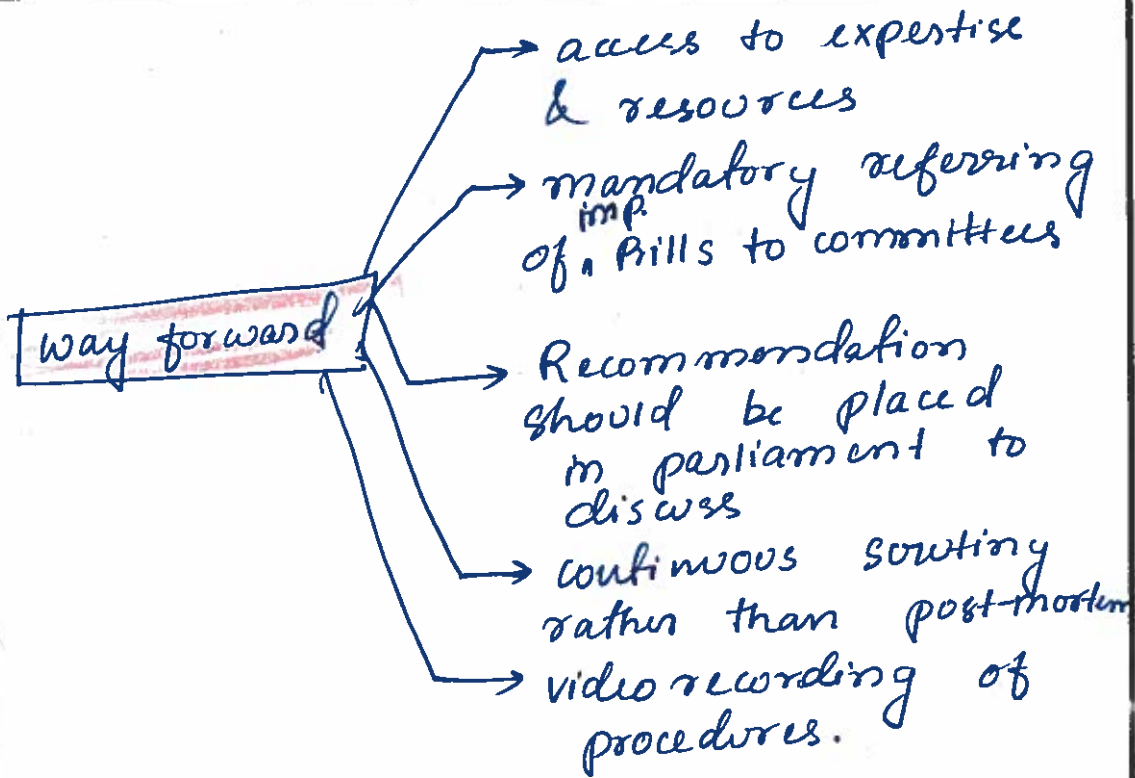 way forward
access to expertise
& resources
mandatory referring
imp.
of ∧ Bills to committees
Recommendation
should be placed
in parliament to
discuss
continuous scrutiny
rather than post-mortem
video recording of
procedures.